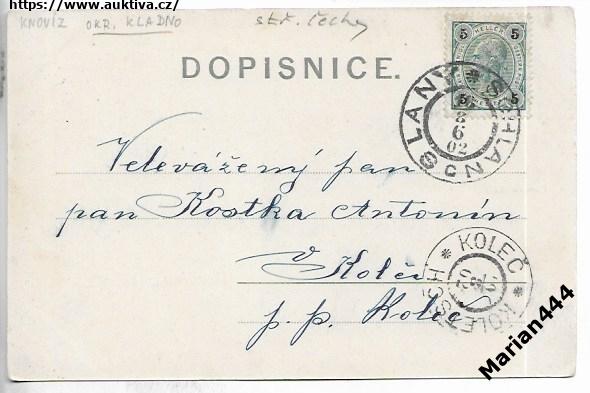 https://www.auktiva.cz/
KNOVÍZ OKR. KLADNO
stř. Čechy
DOPISNICE.
5 HELLER 5
5 5
SCHLAN SLANÝ
8
6
02
Velevážený pan
pan Kostka Antonín
v Kolči
p. p. Koleč
KOLEČ KOLETSCH
Marian444